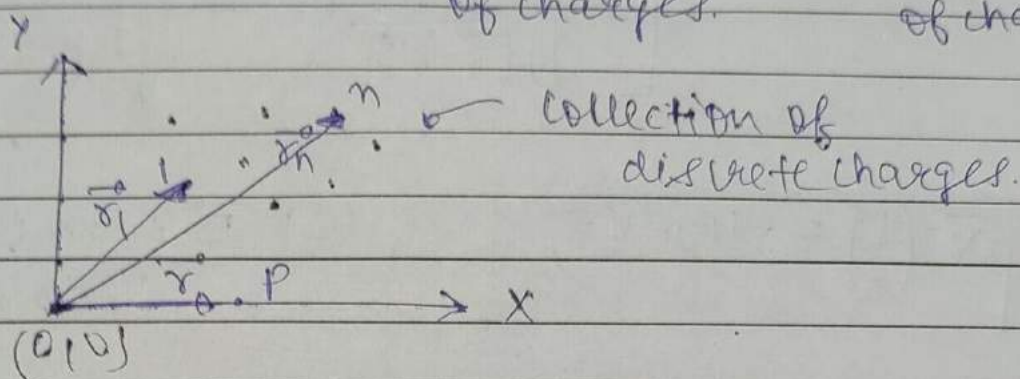 of charges. of cha
Y
n
collection of
discrete charges.
1
r⃗n
r⃗1
r⃗
P
X
(0,0)